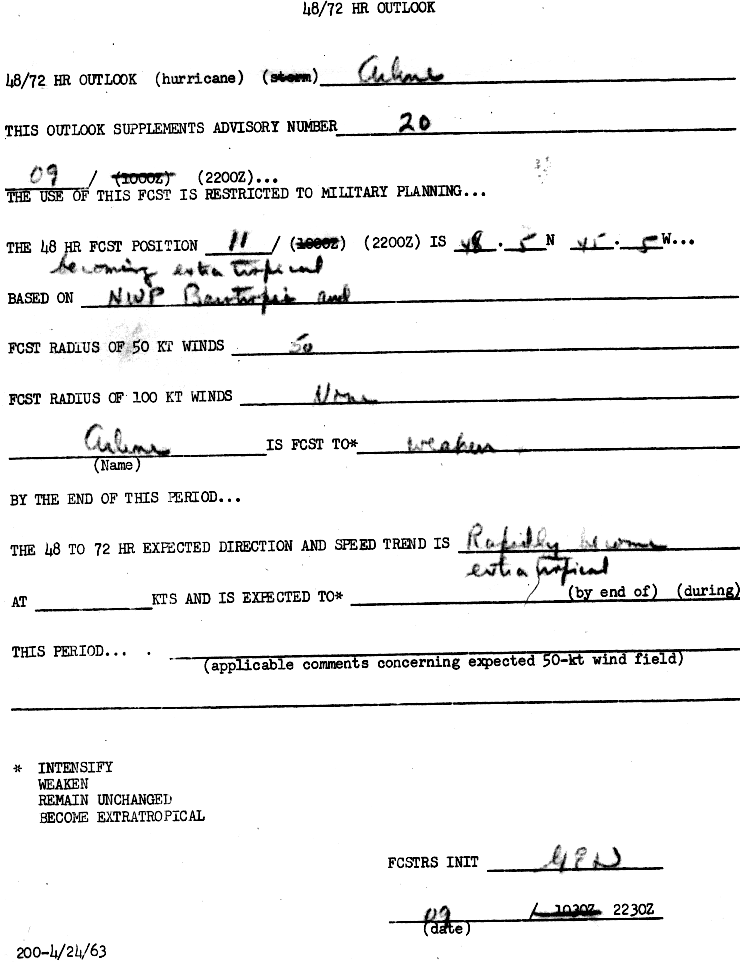 48/72 HR OUTLOOK
48/72 HR OUTLOOK (hurricane) (storm) Arlene
THIS OUTLOOK SUPPLEMENTS ADVISORY NUMBER 20
09 / (1000Z) (2200Z)...
THE USE OF THIS FCST IS RESTRICTED TO MILITARY PLANNING...
THE 48 HR FCST POSITION 11 / (1000Z) (2200Z) IS 48.5 N 45.5 W...
becoming extra tropical
BASED ON NWP Barotropic and
FCST RADIUS OF 50 KT WINDS 50
FCST RADIUS OF 100 KT WINDS None
Arlene IS FCST TO* weaken
(Name)
BY THE END OF THIS PERIOD...
THE 48 TO 72 HR EXPECTED DIRECTION AND SPEED TREND IS Rapidly become
extratropical
AT KTS AND IS EXPECTED TO* (by end of) (during)
THIS PERIOD... .
(applicable comments concerning expected 50-kt wind field)
* INTENSIFY
WEAKEN
REMAIN UNCHANGED
BECOME EXTRATROPICAL
FCSTRS INIT
09 / 1030Z 2230Z
(date)
200-4/24/63